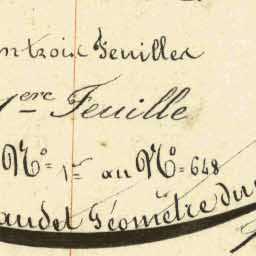 en trois Feuilles
1ere Feuille
Nº 1er au Nº 648
Géomètre du